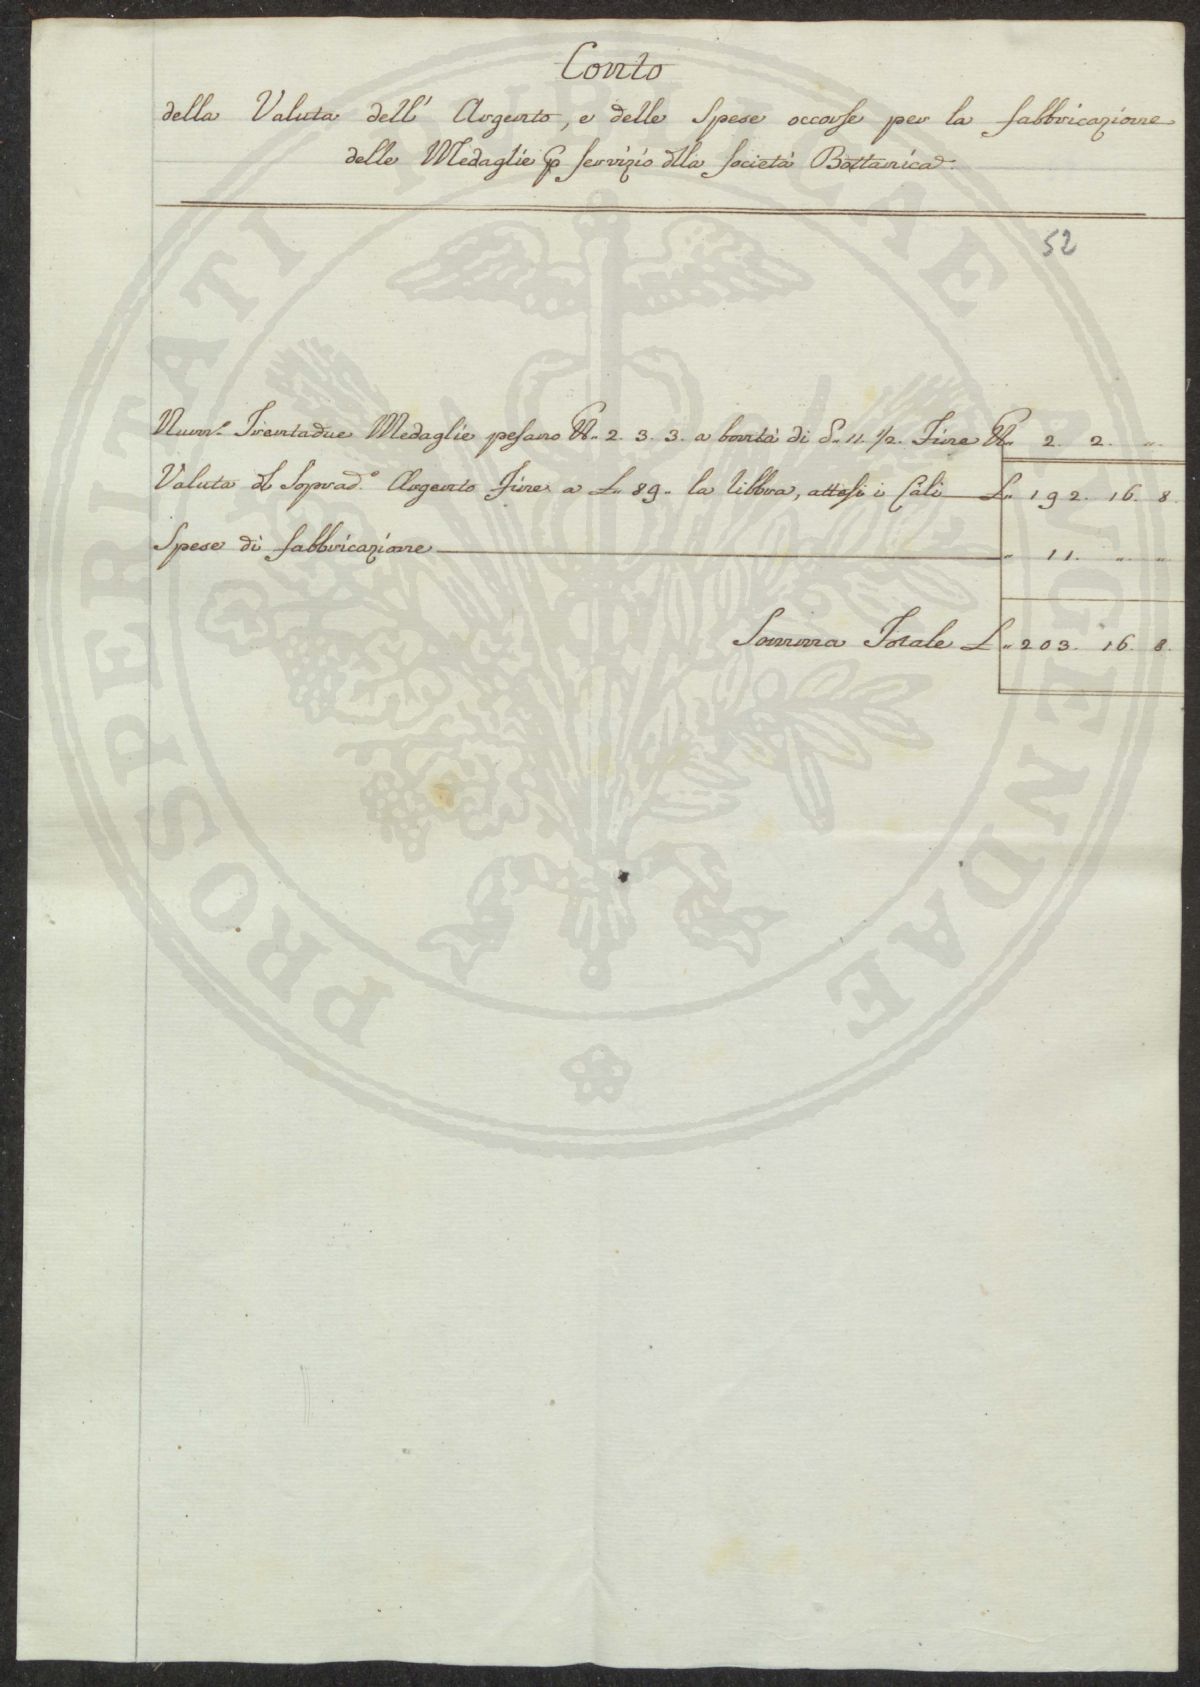 Conto
della Valuta dell' Argento, e delle Spese occorse per la fabbricazione
delle Medaglie p servizio dlla società Bottanica.
52
Num.º Trentadue Medaglie pesano ℔.. 2. 3. 3. a bontà di d.. 11. 1/2. Fine ℔.. 2. 2. ..
Valuta dl Soprad.º Argento Fine a L.. 89.. la libbra, attesi i Cali L.. 192. 16. 8.
Spese di fabbricazione .. 11. .. ..
Somma Totale L.. 203. 16. 8.
PROSPERITATI PUBLICAE AUGENDAE